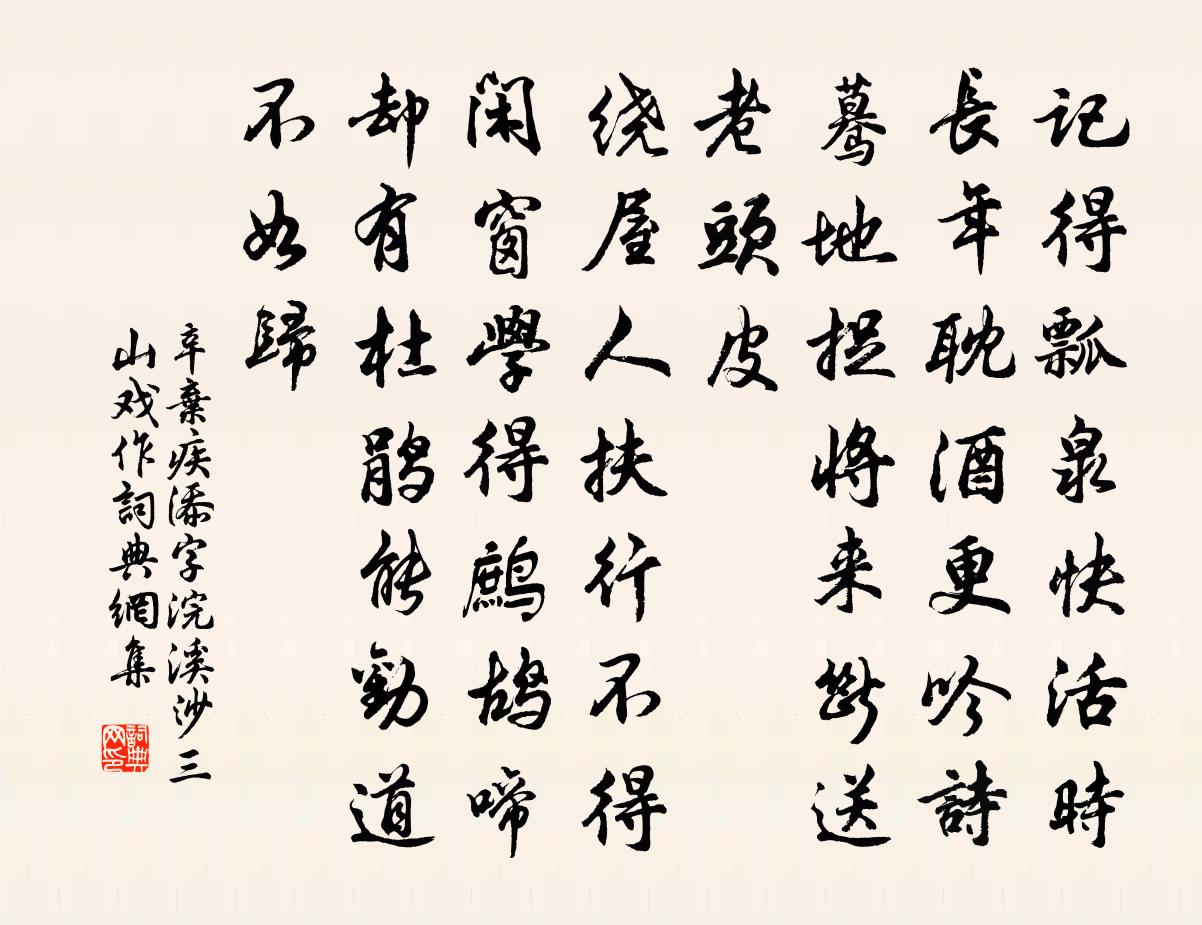 记得瓢泉快活時
長年耽酒更吟詩
蓦地捉將来断送
老頭皮
绕屋人扶行不得
闲窗學得鹧鸪啼
却有杜鹃能勸道
不如歸
辛棄疾添字浣溪沙三
山戏作詞典網集
詞典
网印